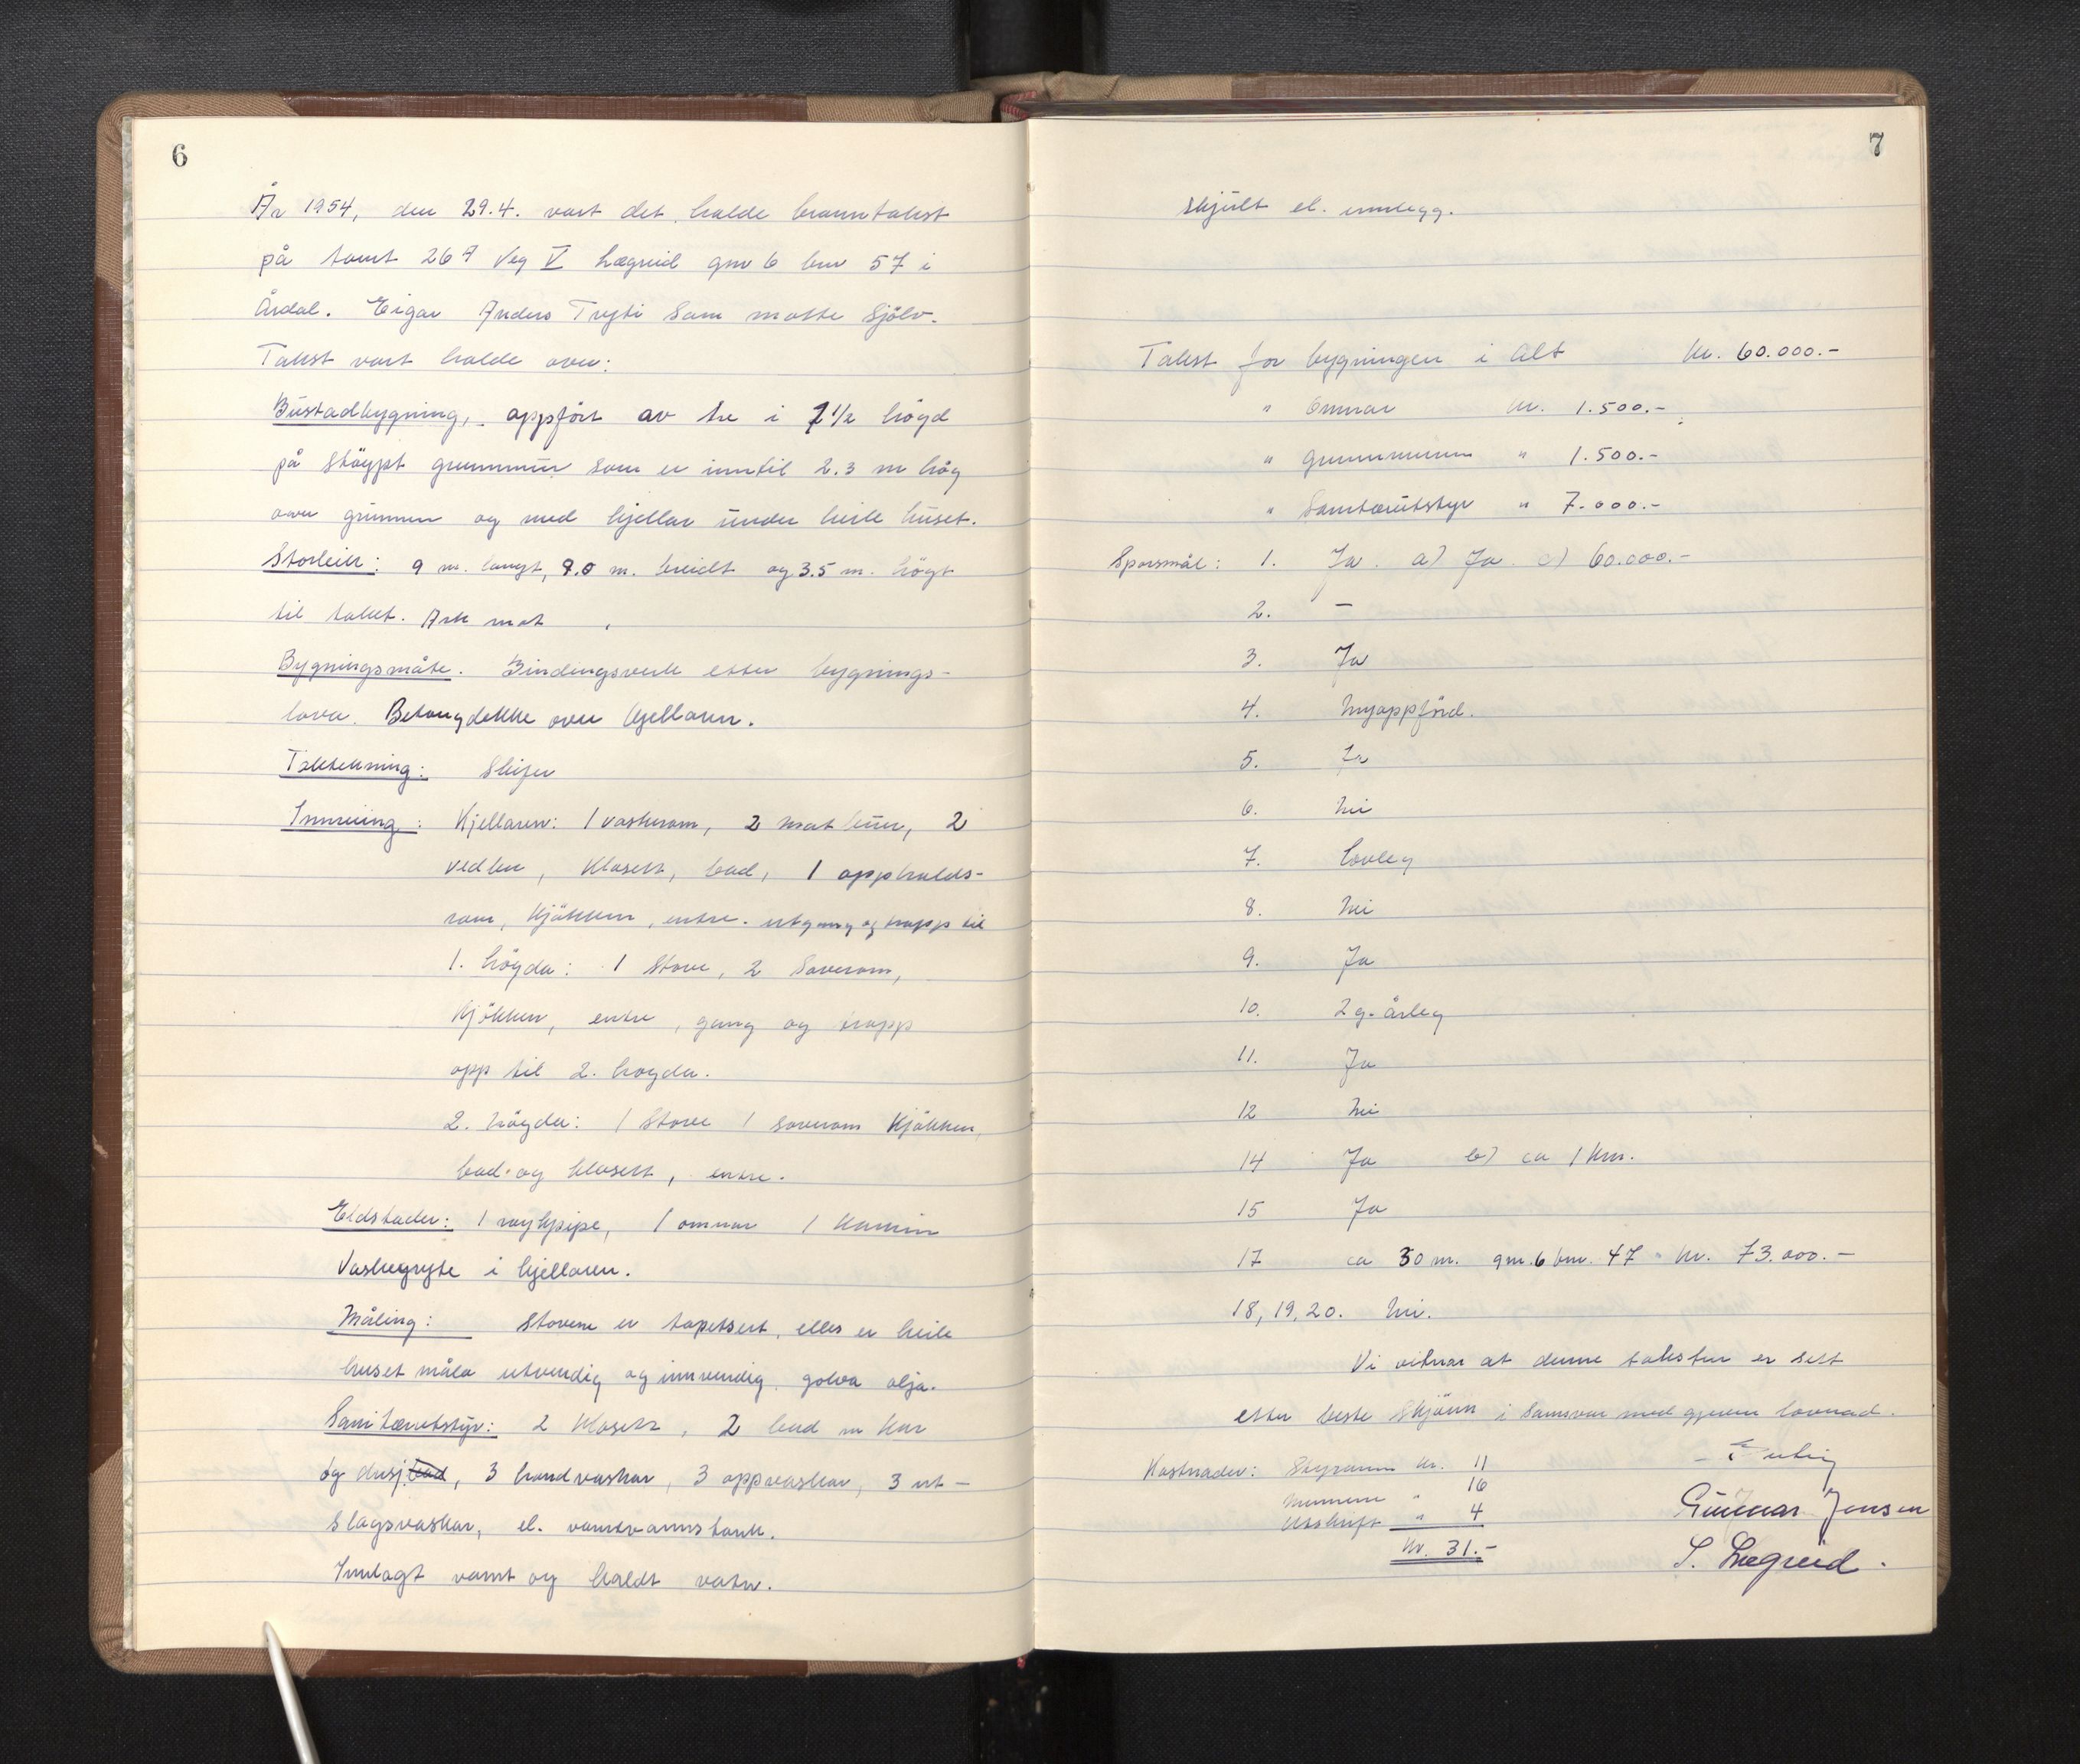 6
År 1954, den 29.4. vart det halde branntakst
på tomt 267 Veg V Lægreid gnr 6 bnr 57 i
Årdal. Eigar Anders Tryti som møtte sjölv.
Takst vart halde over:
Bustadbygning, oppfört av tre i 1 1/2 högd
på stöypt grunnmur som er inntil 2.3 m hög
over grunnen og med kjellar under heile huset.
Storleik: 9 m. langt, 8.0 m. breidt og 3.5 m. högt
til taket. Ark mot
Bygningsmåte. Bindingsverk etter bygnings-
lova. Betongdekke over kjellaren.
Taktekning: Skifer
Innreiing: Kjellaren: 1 vaskerom, 2 matbur, 2
vedbu, klosett, bad, 1 opphalds-
rom, kjökken, entre. utgang og trapp til
1. högda: 1 stove, 2 soverom,
kjökken, entre, gang og trapp
opp til 2. högda.
2. högda: 1 stove 1 soverom kjökken,
bad og klosett, entre.
Eldstader: 1 röykpipe, 1 omnar 1 kamin
Vaskegryte i kjellaren.
Måling: Stovene er tapetsert, elles er heile
huset måla utvendig og innvendig, golva olja.
Sanitærutstyr: 2 klosett, 2 bad m kar
og dusj bad, 3 handvaskar, 3 oppvaskar, 3 ut-
slagsvaskar, el. varmtvannstank.
Innlagt varmt og kaldt vatn.
7
skjult el. innlegg.
Takst for bygningen i alt kr. 60.000.-
" omnar kr. 1.500.-
" grunnmuren " 1.500.-
" Sanitærutstyr " 7.000.-
Spørsmål: 1. Ja. a) Ja c) 60.000.-
2. -
3. Ja
4. Nyoppförd.
5. Ja
6. Nei
7. Lovleg
8. Nei
9. Ja
10. 2 g. årleg
11. Ja
12 Nei
14 Ja b) ca 1 km.
15 Ja
17 ca 30 m. gnr. 6 bnr. 47 " kr. 73.000.-
18, 19, 20. Nei.
Vi vitnar at denne taksten er sett
etter beste skjönn i samsvar med gjeven lovnad.
Kostnader: Skjönnn kr. 11
" 16
Utskrift " 4
kr. 31.-
Gunnar Jensen
S. Lægreid.